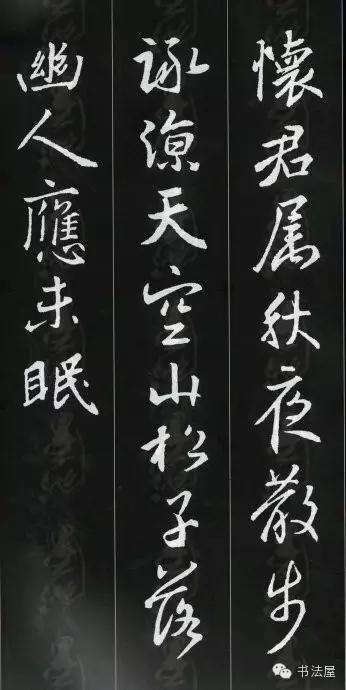 懷君属秋夜散步
詠涼天空山松子落
幽人應未眠
书法屋